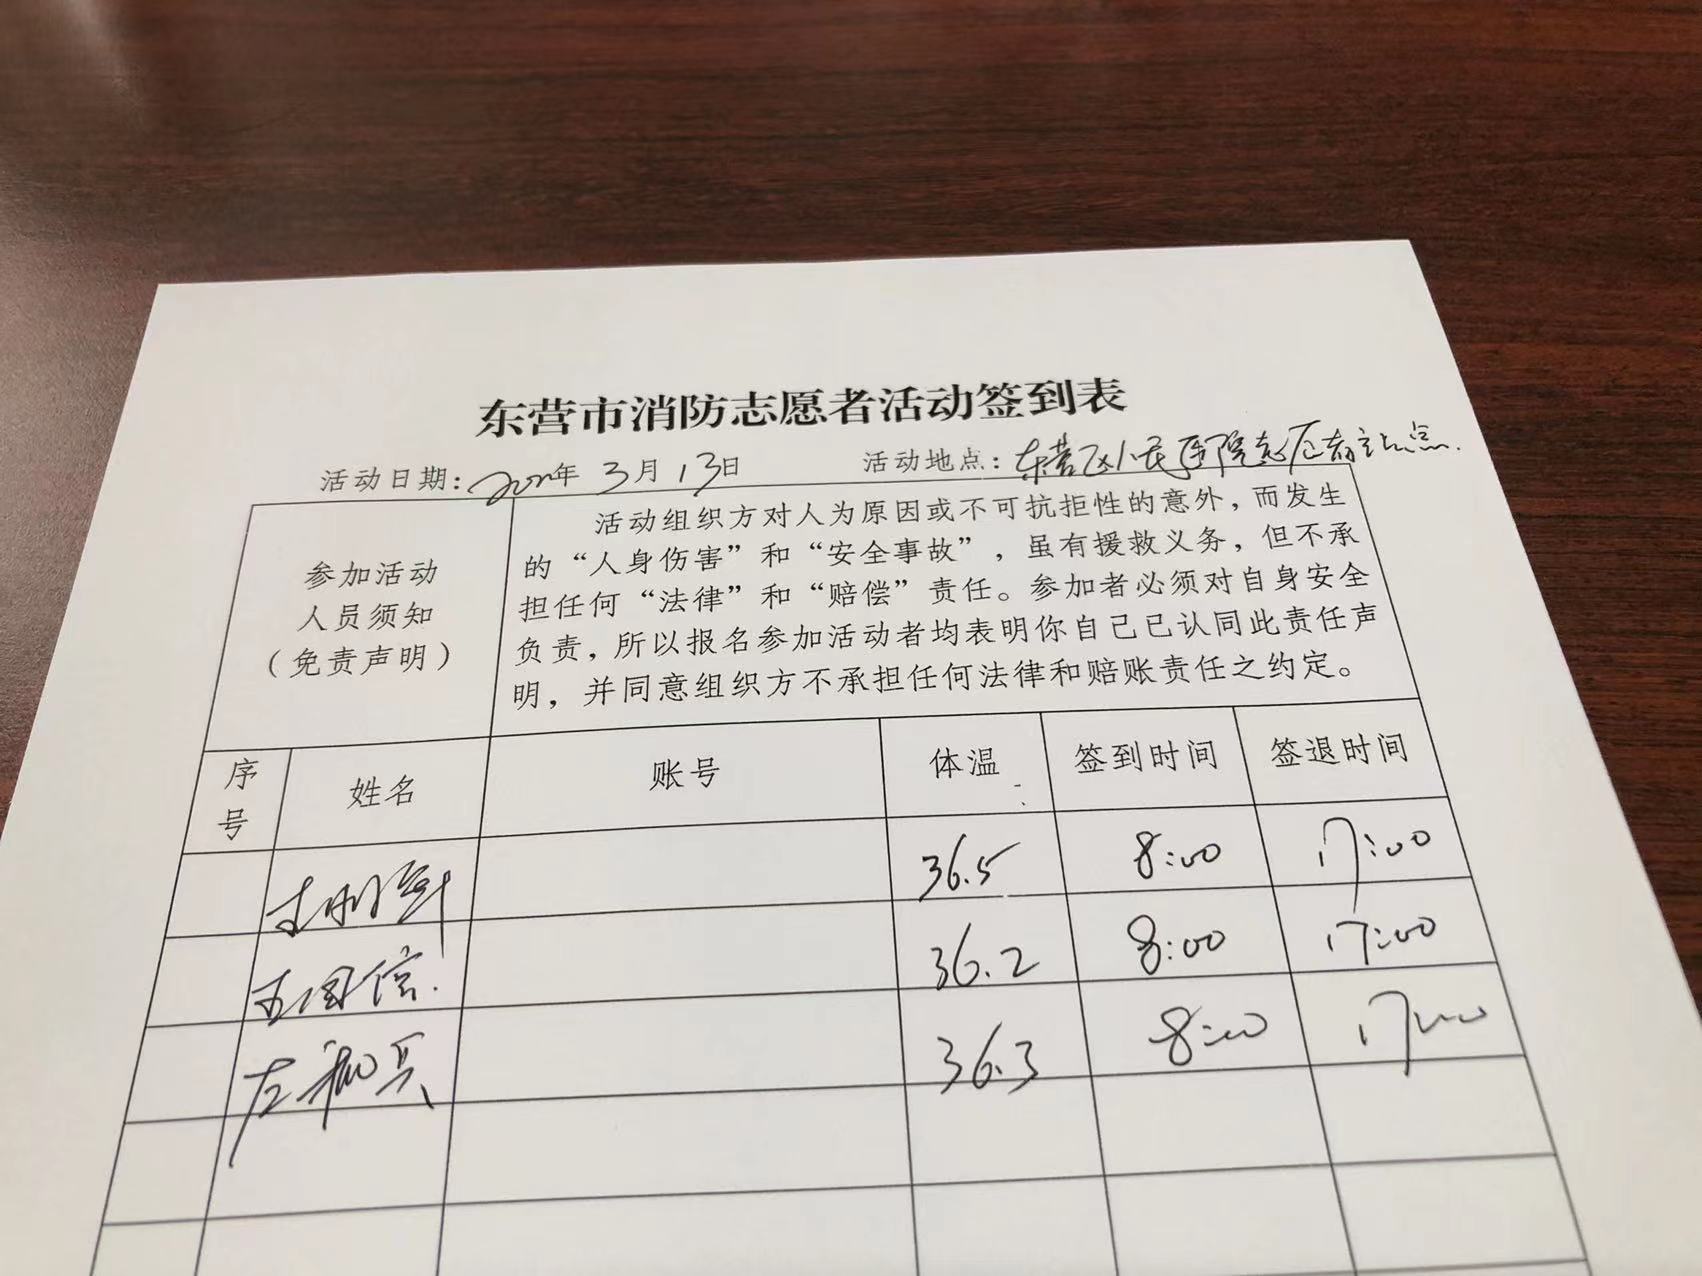 东营市消防志愿者活动签到表
活动日期：2022年 3月 13日 活动地点：东营区人民医院志愿者站点.
参加活动
人员须知
（免责声明）
活动组织方对人为原因或不可抗拒性的意外，而发生
的“人身伤害”和“安全事故”，虽有援救义务，但不承
担任何“法律”和“赔偿”责任。参加者必须对自身安全
负责，所以报名参加活动者均表明你自己已认同此责任声
明，并同意组织方不承担任何法律和赔账责任之约定。
序号 姓名 账号 体温 签到时间 签退时间
36.5 8:00 17:00
国信. 36.2 8:00 17:00
左 兵 36.3 8:00 17:00